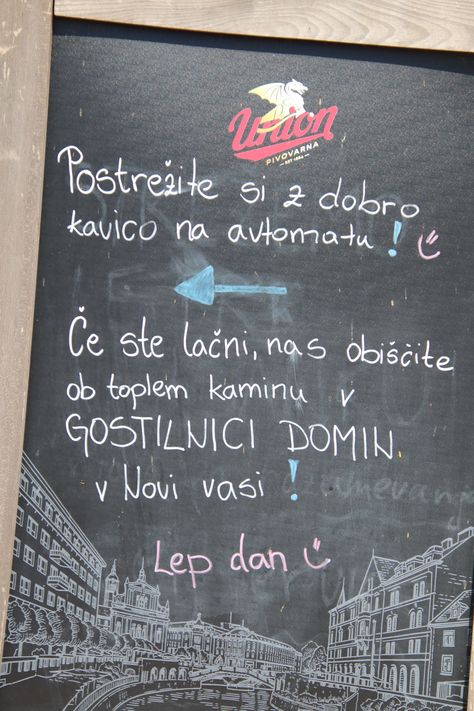 Union
PIVOVARNA
EST 1864
Postrežite si z dobro
kavico na avtomatu!
Če ste lačni, nas obiščite
ob toplem kaminu v
GOSTILNICI DOMIN
v Novi vasi!
Lep dan